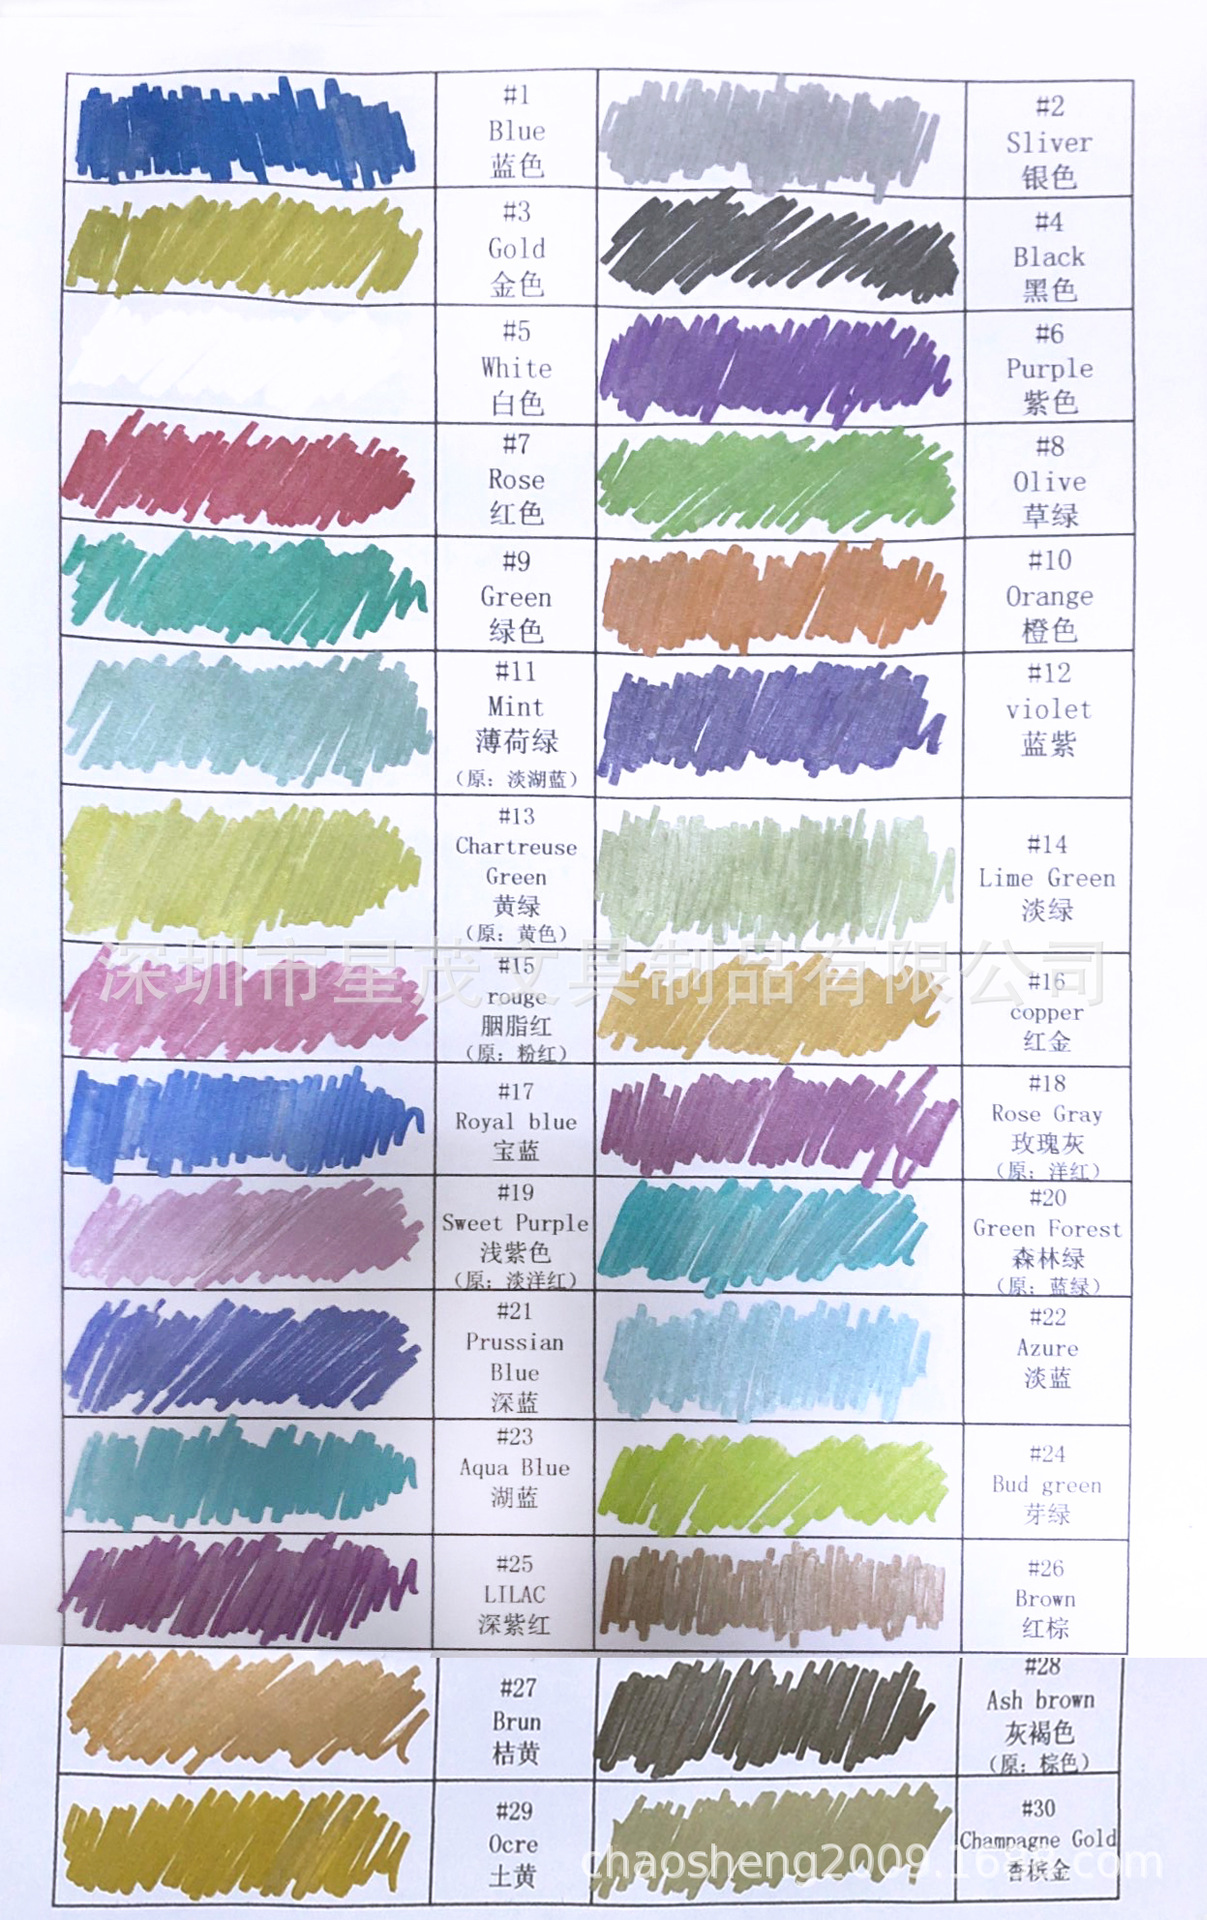 #1
Blue
蓝色
#2
Sliver
银色
#3
Gold
金色
#4
Black
黑色
#5
White
白色
#6
Purple
紫色
#7
Rose
红色
#8
Olive
草绿
#9
Green
绿色
#10
Orange
橙色
#11
Mint
薄荷绿
(原: 淡湖蓝)
#12
violet
蓝紫
#13
Chartreuse
Green
黄绿
(原: 黄色)
#14
Lime Green
淡绿
深圳市星茂文具制品有限公司
#15
rouge
胭脂红
(原: 粉红)
#16
copper
红金
#17
Royal blue
宝蓝
#18
Rose Gray
玫瑰灰
(原: 洋红)
#19
Sweet Purple
浅紫色
(原: 淡洋红)
#20
Green Forest
森林绿
(原: 蓝绿)
#21
Prussian
Blue
深蓝
#22
Azure
淡蓝
#23
Aqua Blue
湖蓝
#24
Bud green
芽绿
#25
LILAC
深紫红
#26
Brown
红棕
#27
Brun
桔黄
#28
Ash brown
灰褐色
(原: 棕色)
#29
Ocre
土黄
#30
Champagne Gold
香槟金
chaosheng2009.1688.com